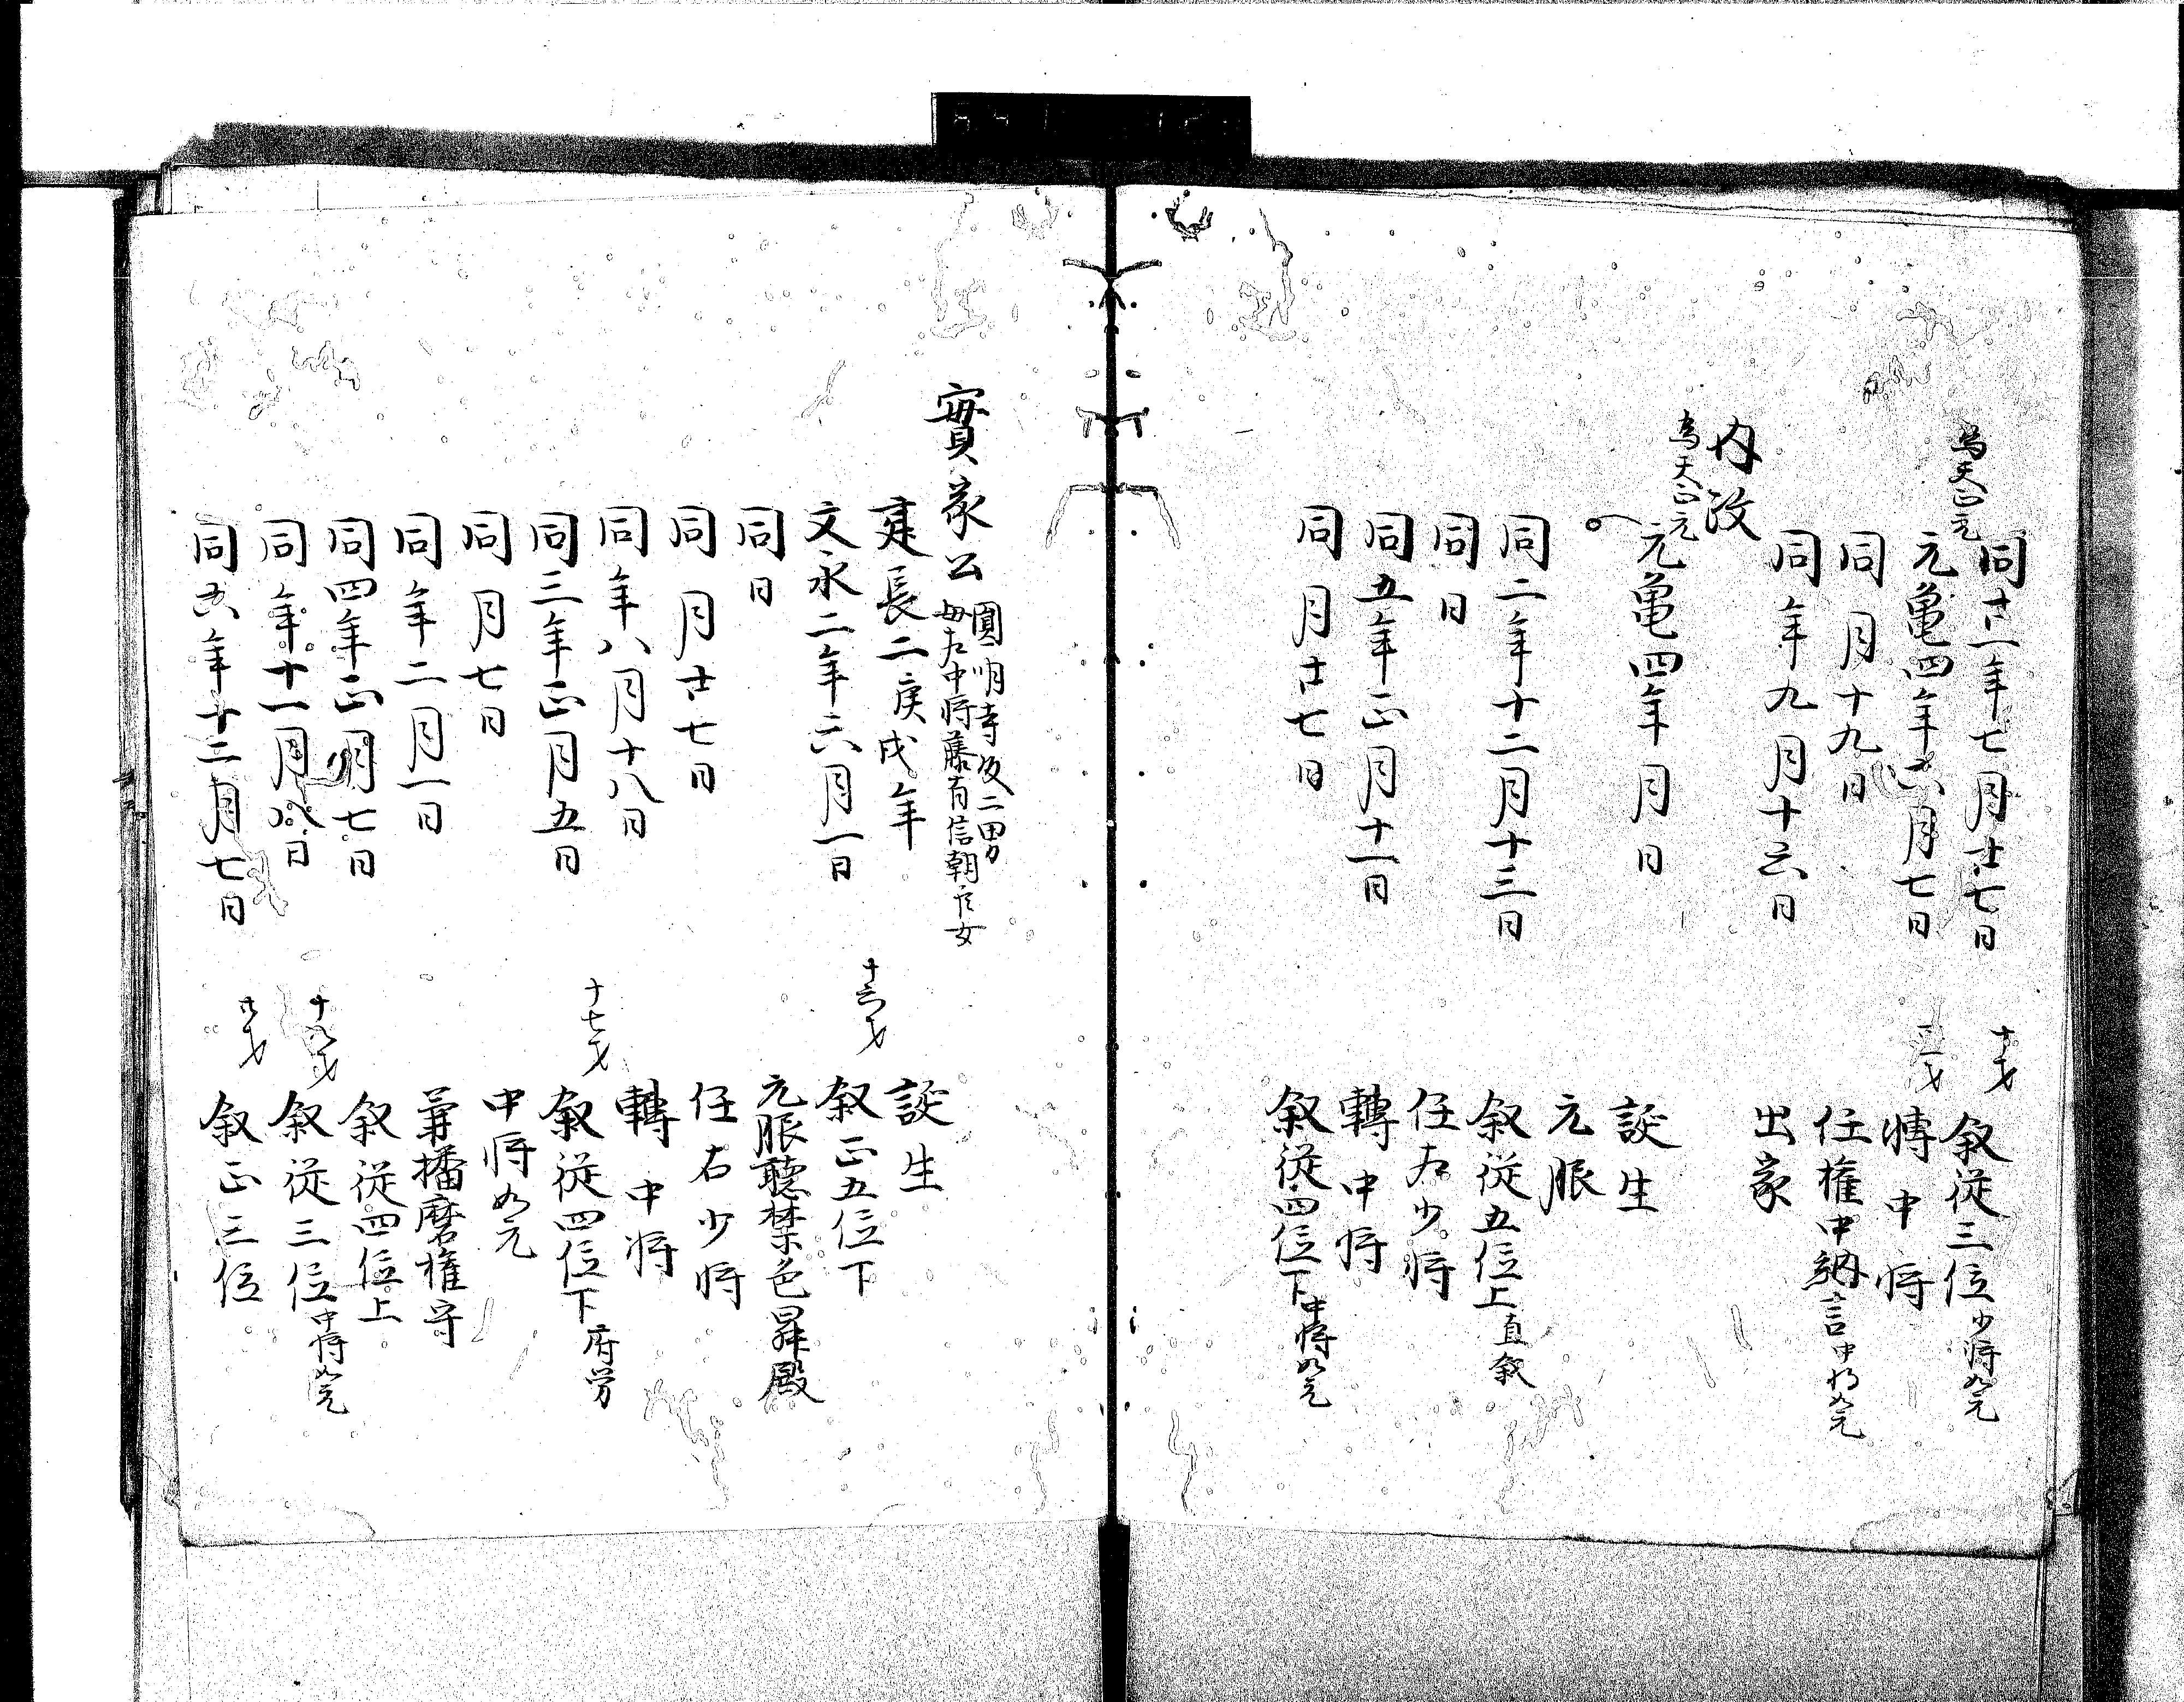 同十一年七月廿七日 十才 叙従三位少将如元
為天正元
元亀四年六月七日 転中将
同月十九日 任権中納言中将如元
同年九月十六日 出家
内政
為天正元
元亀四年月日 誕生
元服
同二年十二月十三日 叙従五位上直叙
同日 任左少将
同五年正月十一日 轉中将
同月廿七日 叙従四位下中将如元
實家公 圓明寺殿二男
母左中将藤有信朝臣女
建長二庚戌年 誕生
文永二年六月一日 十六才 叙正五位下
同日 元服聴禁色昇殿
同月廿七日 任右少将
同年八月十八日 轉中将
同三年正月五日 十七才 叙従四位下府労
同月七日 中将如元
同年二月一日 兼播磨権守
同四年正月七日 叙従四位上
同年十一月八日 叙従三位中将如元
同六年十二月七日 廿才 叙正三位